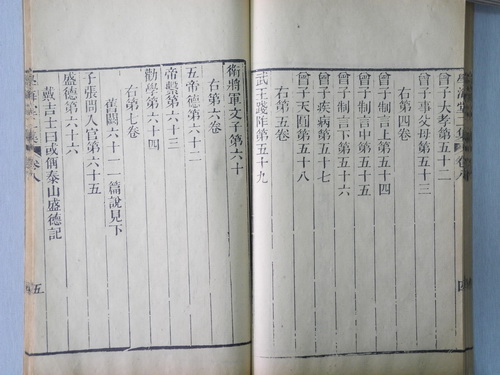 曾子大孝第五十二
曾子事父母第五十三
右第四卷
曾子制言上第五十四
曾子制言中第五十五
曾子制言下第五十六
曾子疾病第五十七
曾子天圓第五十八
右第五卷
武王踐阼第五十九
衛將軍文子第六十
右第六卷
五帝德第六十二
帝繫第六十三
勸學第六十四
右第七卷
舊闕六十一一篇說見下
子張問入官第六十五
盛德第六十六
戴吉士曰或偁泰山盛德記
卷八
五